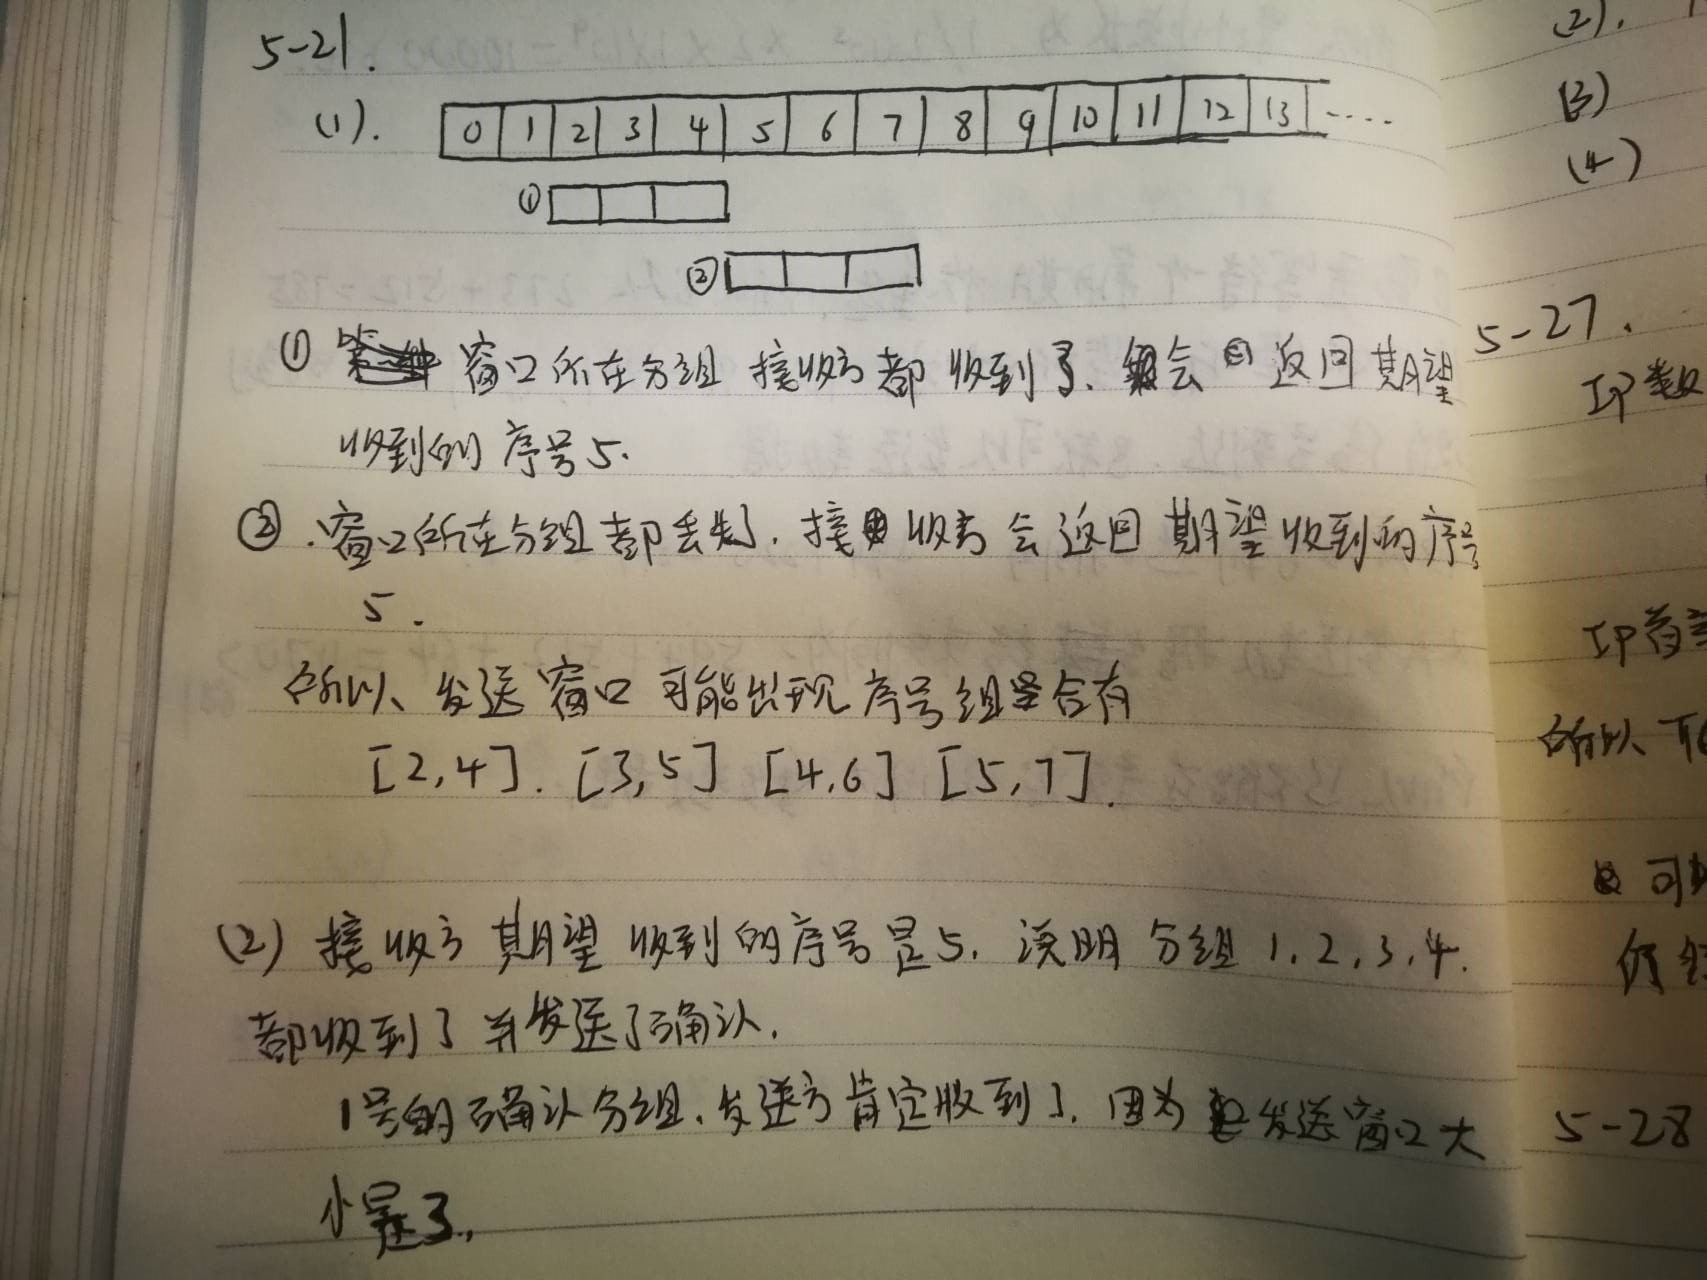 5-21.
(1). 0 1 2 3 4 5 6 7 8 9 10 11 12 13 ....
①
②
① 窗口所在分组 接收方都 收到了. 会 返回期望
收到的 序号5.
② .窗口所在分组都丢失了. 接收方会返回期望收到的序号
5.
所以、发送窗口可能出现序号组合有
[2,4]. [3,5] [4,6] [5,7].
(2) 接收方期望收到的序号是5. 说明 分组 1.2.3.4.
都收到了并发送了确认.
1号的确认分组、发送方肯定收到了. 因为发送窗口大
小是3.
(2).
(3)
(4)
5-27.
IP数
IP首
所以、
可
5-28